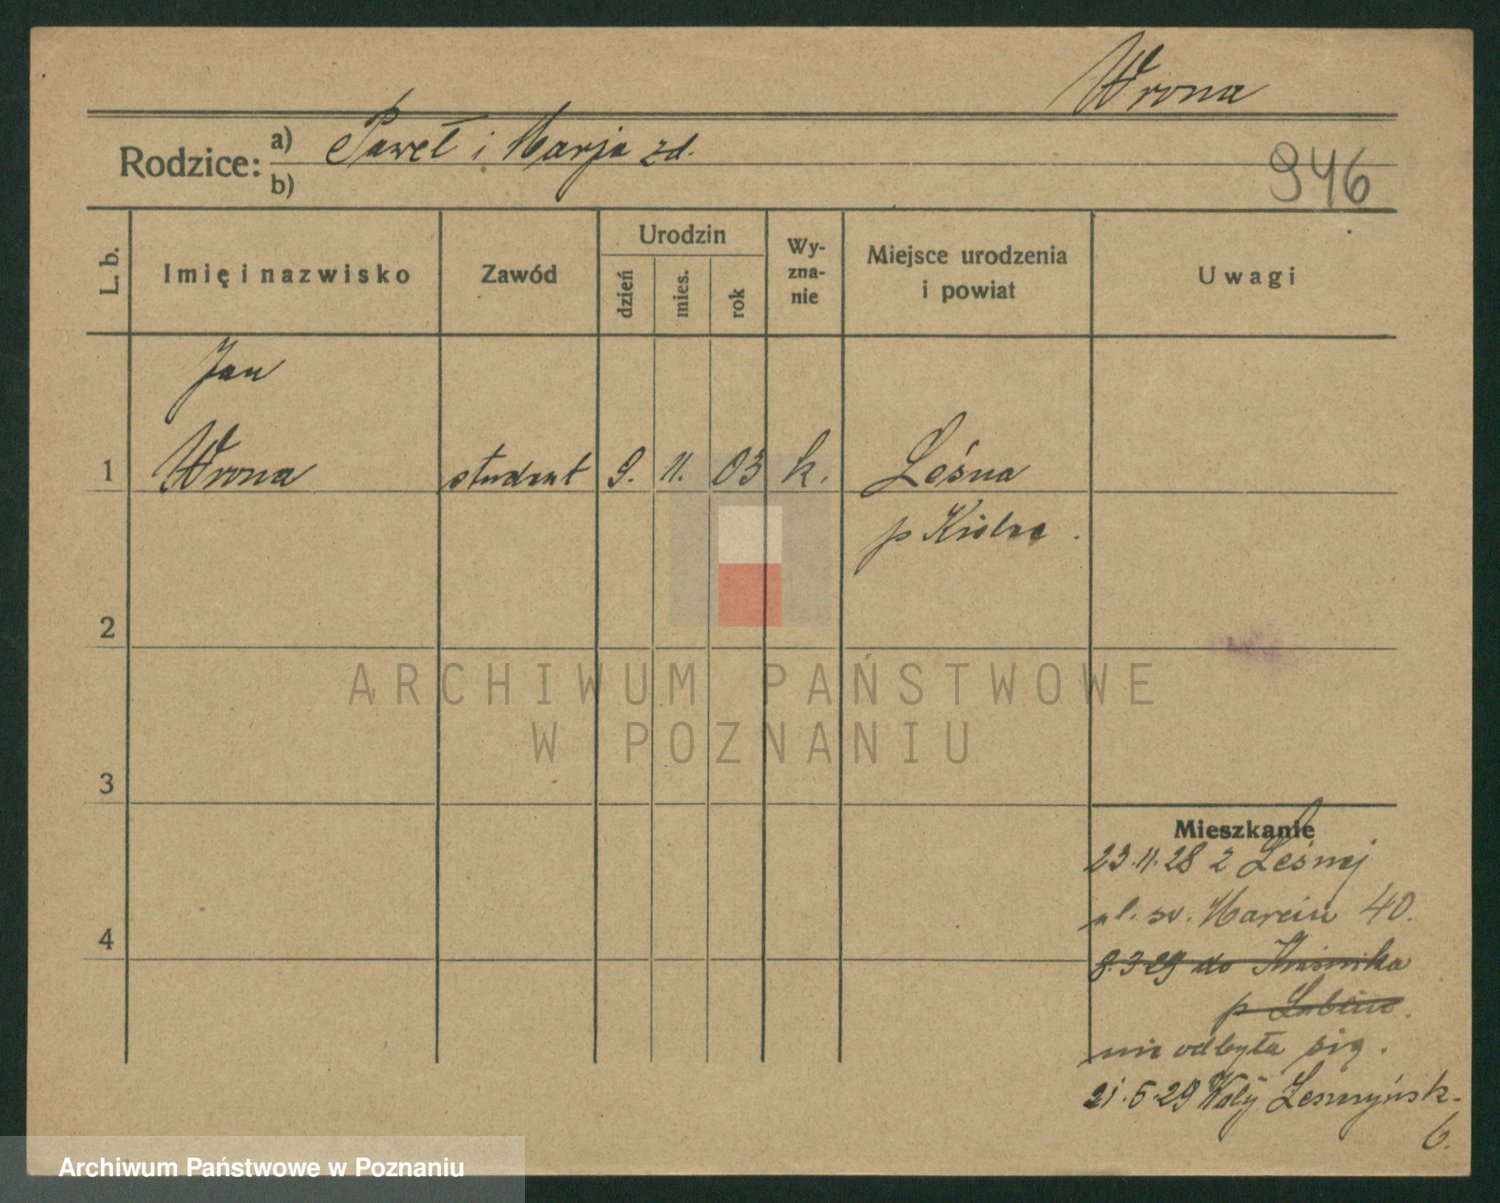 Wrona
Rodzice: a) Paweł i Marja zd.
b)
946
L. b.
Imię i nazwisko
Zawód
Urodzin
dzień
mies.
rok
Wy-
zna-
nie
Miejsce urodzenia
i powiat
Uwagi
Jan
1 Wrona student 9. 11. 03 k. Leśna
p Kielce.
2
ARCHIWUM PAŃSTWOWE
W POZNANIU
3
Mieszkanie
23.11.28 z Leśnej
ul. sw. Marcin 40.
4
8.3 29 do Kraśnika
p Lublin.
nie odbyła się.
21.5.29 Wały Leszczyńsk.
6.
Archiwum Państwowe w Poznaniu